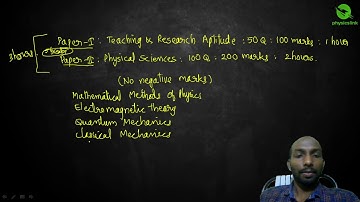 physicslink
Paper-I : Teaching & Research Aptitude : 50 Q : 100 marks : 1 hour
3hours
Paper-II : Physical Sciences : 100 Q : 200 marks : 2 hours.
(No negative marks)
Mathematical Methods of Physics
Electromagnetic Theory
Quantum Mechanics
Classical Mechanics